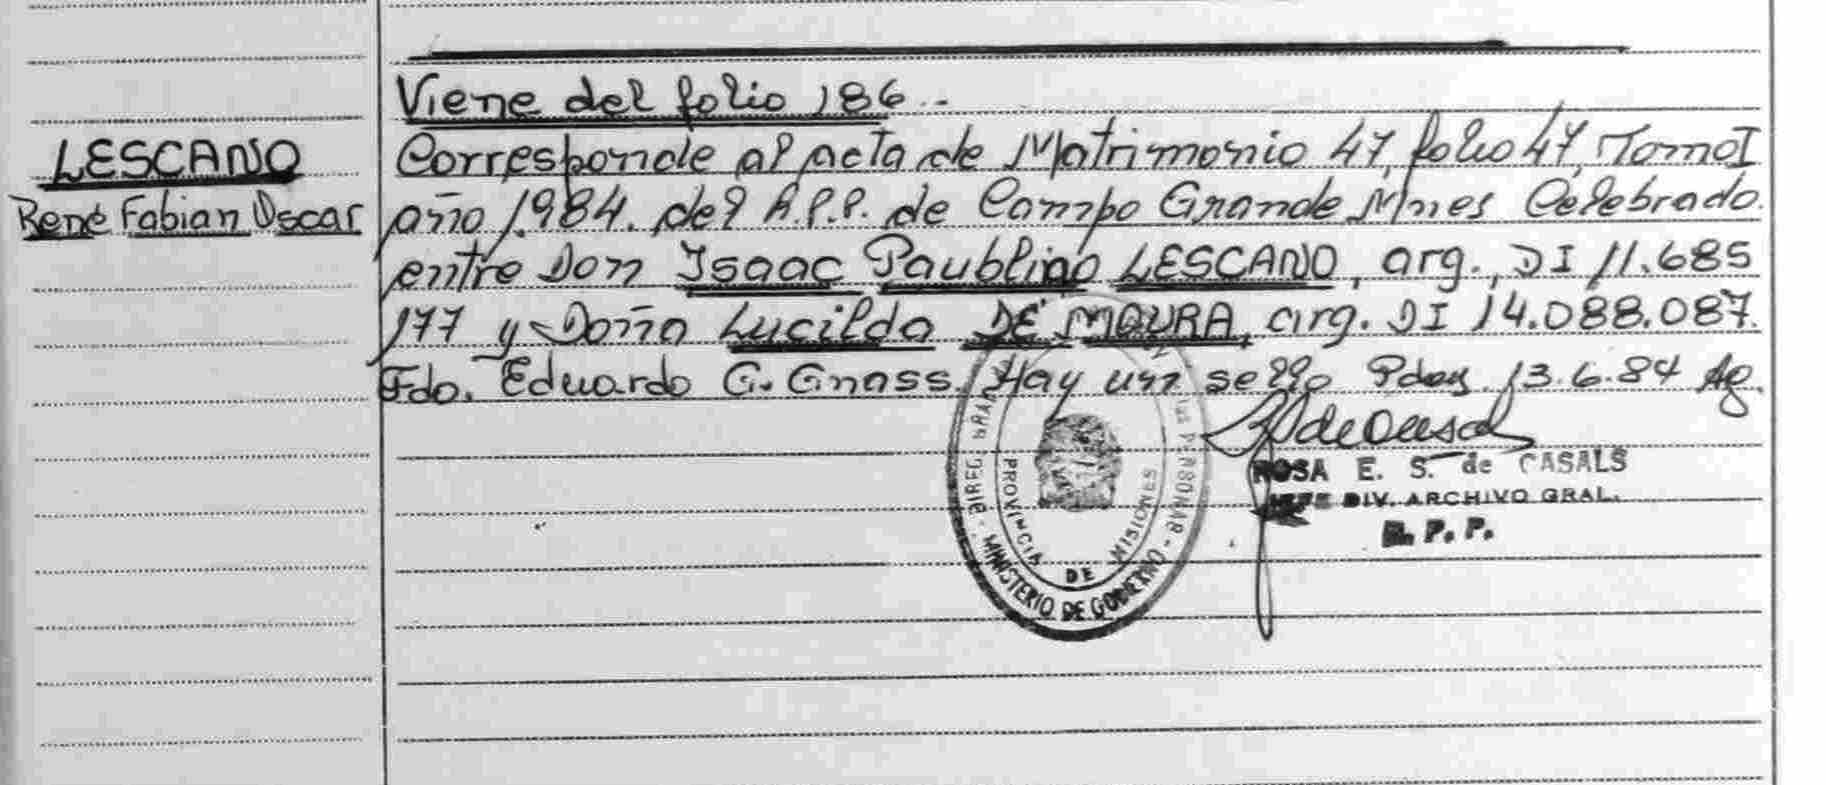 LESCANO
René Fabian Oscar
Viene del folio 186..
Corresponde al acta de Matrimonio 47, folio 47, Tomo I
año 1984. del R.P.P. de Campo Grande Mnes Celebrado
entre Don Isaac Paublino LESCANO, arg., DI 11.685
177 y Doña Lucilda DE MOURA, arg. DI 14.088.087.
Fdo. Eduardo G. Gnass. Hay un sello Pdas 13.6.84 Ag.
ROSA E. S. de CASALS
JEFE DIV. ARCHIVO GRAL.
R. P. P.
PROVINCIA DE MISIONES
MINISTERIO DE GOBIERNO